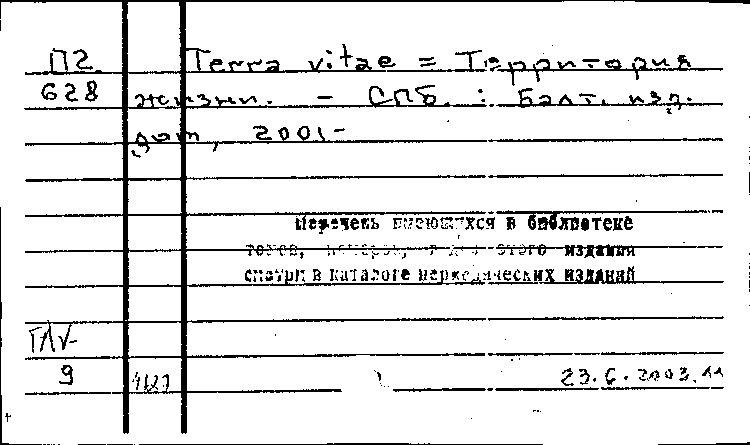 П2 Terra vitae = Территория
628 жизни. - СПб. : Балт. изд.
дом, 2001-
Перечень имеющихся в библиотеке
томов, номеров, этого издания
смотри в каталоге периодических изданий
9
23.6.2003